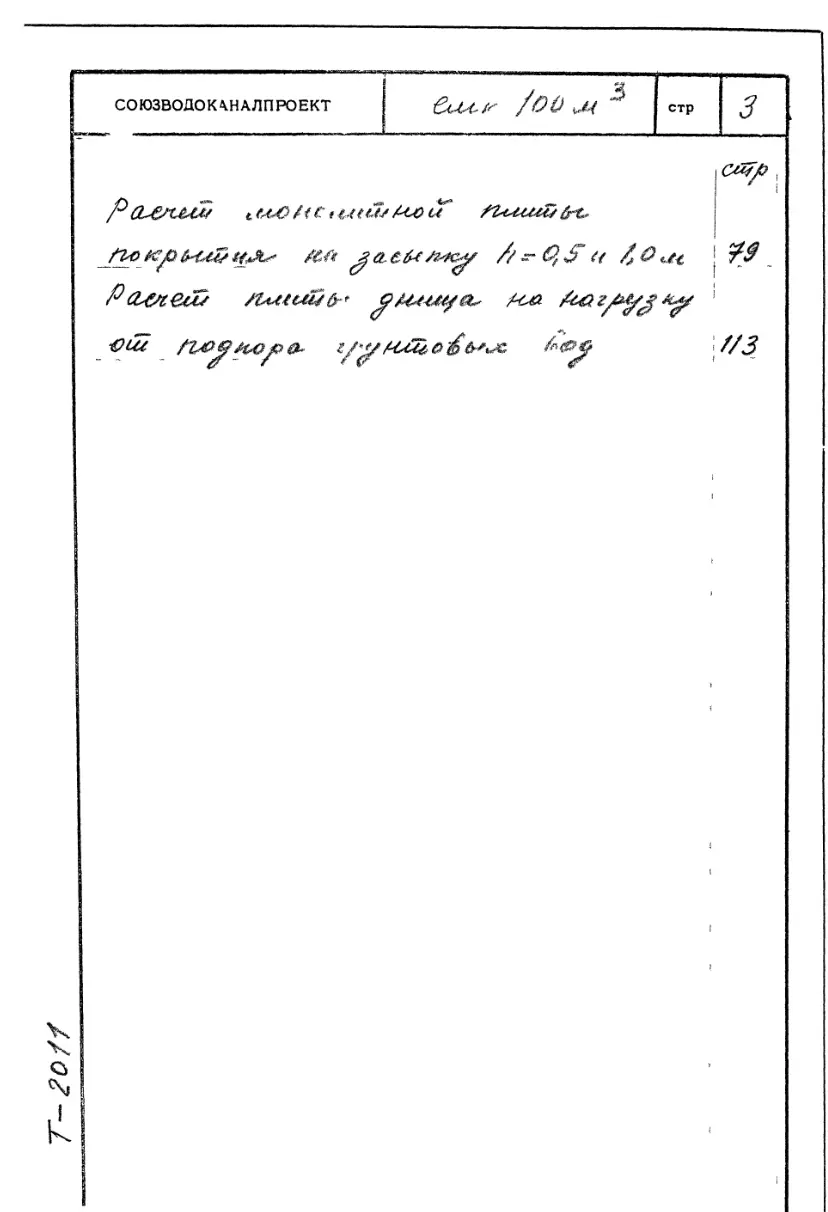 СОЮЗВОДОКАНАЛПРОЕКТ емк 100 м³ стр 3
стр
Расчет монолитной плиты
покрытия на засыпку h=0,5 и 1,0м 79
Расчет плиты днища на нагрузку
от подпора грунтовых вод 113
Т-2011